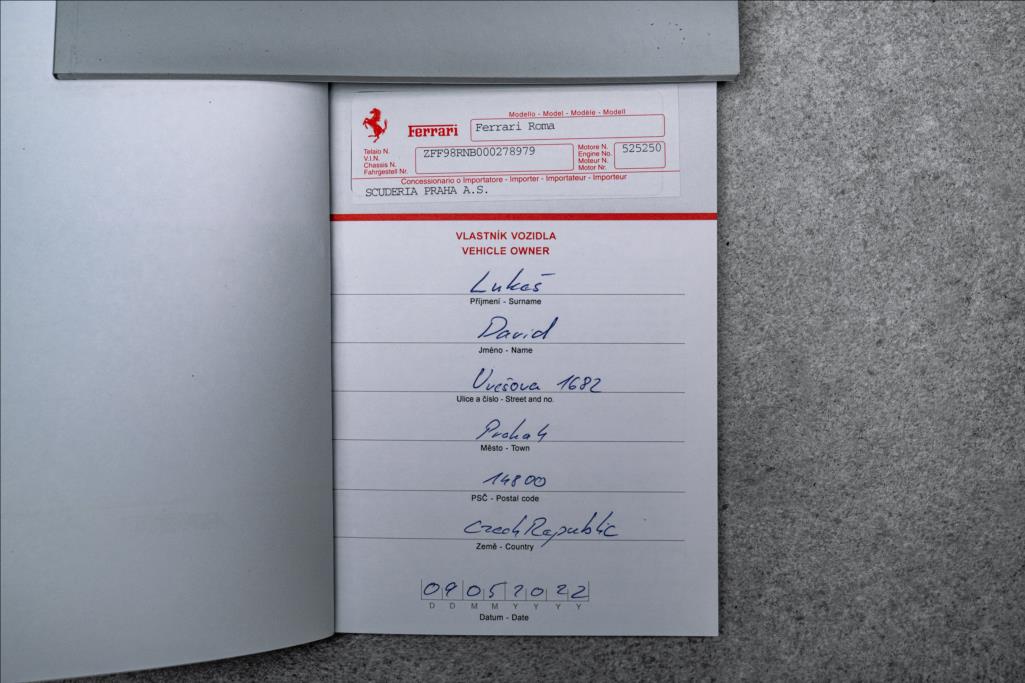 Modello - Model - Modèle - Modell
Ferrari Ferrari Roma
Telaio N.
V.I.N.
Chassis N.
Fahrgestell Nr.
ZFF98RNB000278979
Motore N.
Engine No.
Moteur N.
Motor Nr.
525250
Concessionario o Importatore - Importer - Importateur - Importeur
SCUDERIA PRAHA A.S.
VLASTNÍK VOZIDLA
VEHICLE OWNER
Lukaš
Příjmení - Surname
David
Jméno - Name
1682
Ulice a číslo - Street and no.
Praha 4
Město - Town
14800
PSČ - Postal code
Czech Republic
Země - Country
09052022
D D M M Y Y Y Y
Datum - Date